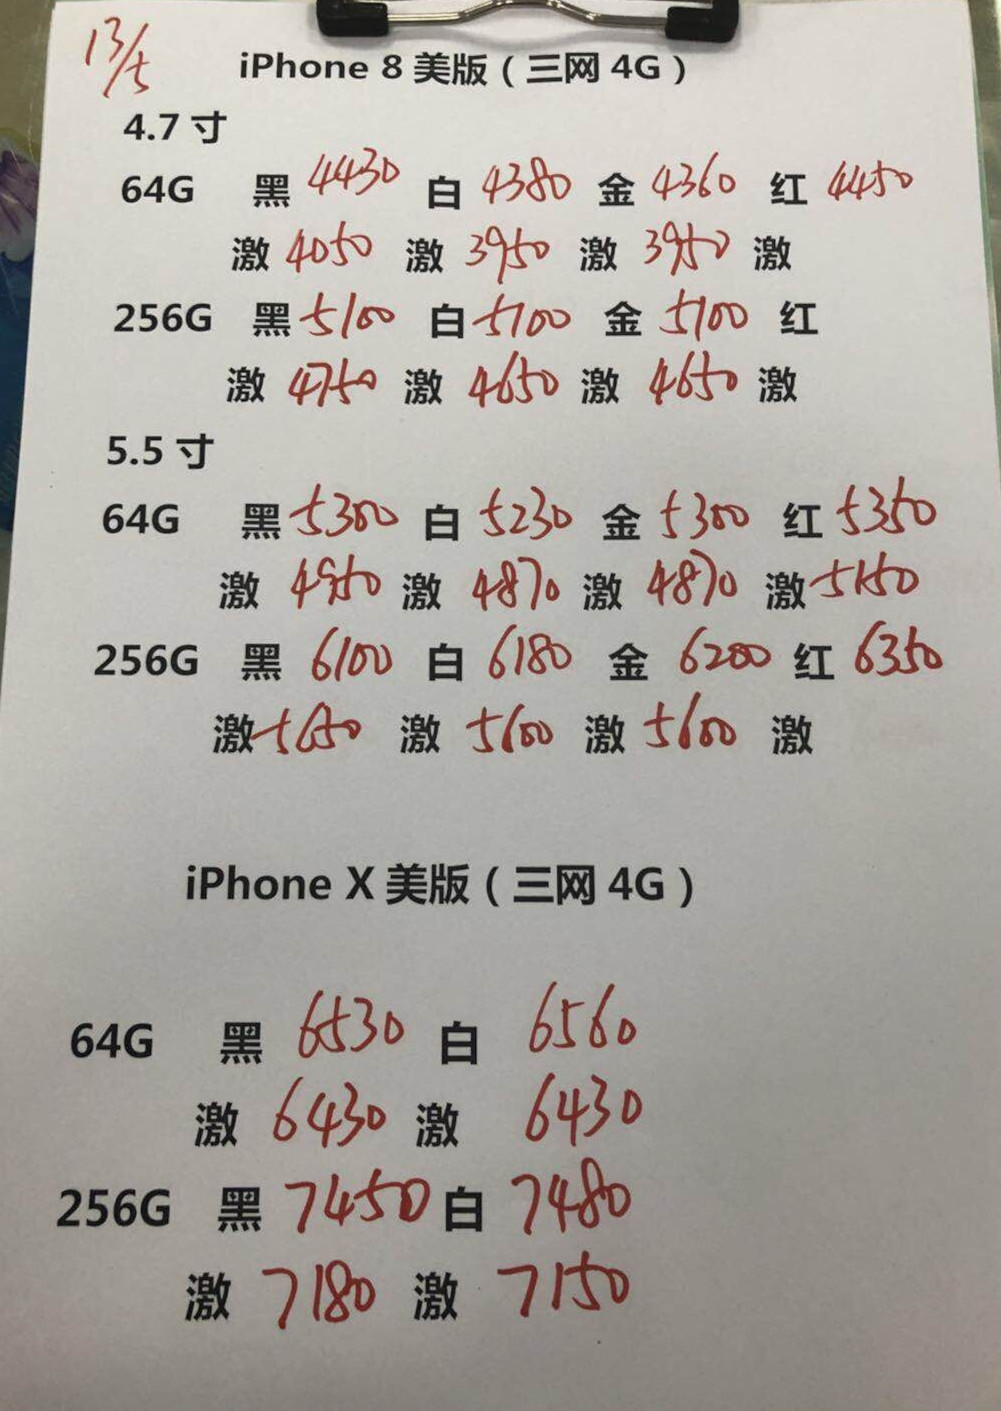 13/5
iPhone 8 美版（三网 4G）
4.7 寸
64G 黑 4430 白 4380 金 4360 红 4450
激 4050 激 3950 激 3950 激
256G 黑 5100 白 5100 金 5100 红
激 4750 激 4650 激 4650 激
5.5 寸
64G 黑 5300 白 5230 金 5300 红 5350
激 4950 激 4870 激 4870 激 5150
256G 黑 6100 白 6180 金 6200 红 6350
激 5650 激 5600 激 5600 激
iPhone X 美版（三网 4G）
64G 黑 6530 白 6560
激 6430 激 6430
256G 黑 7450 白 7480
激 7180 激 7150